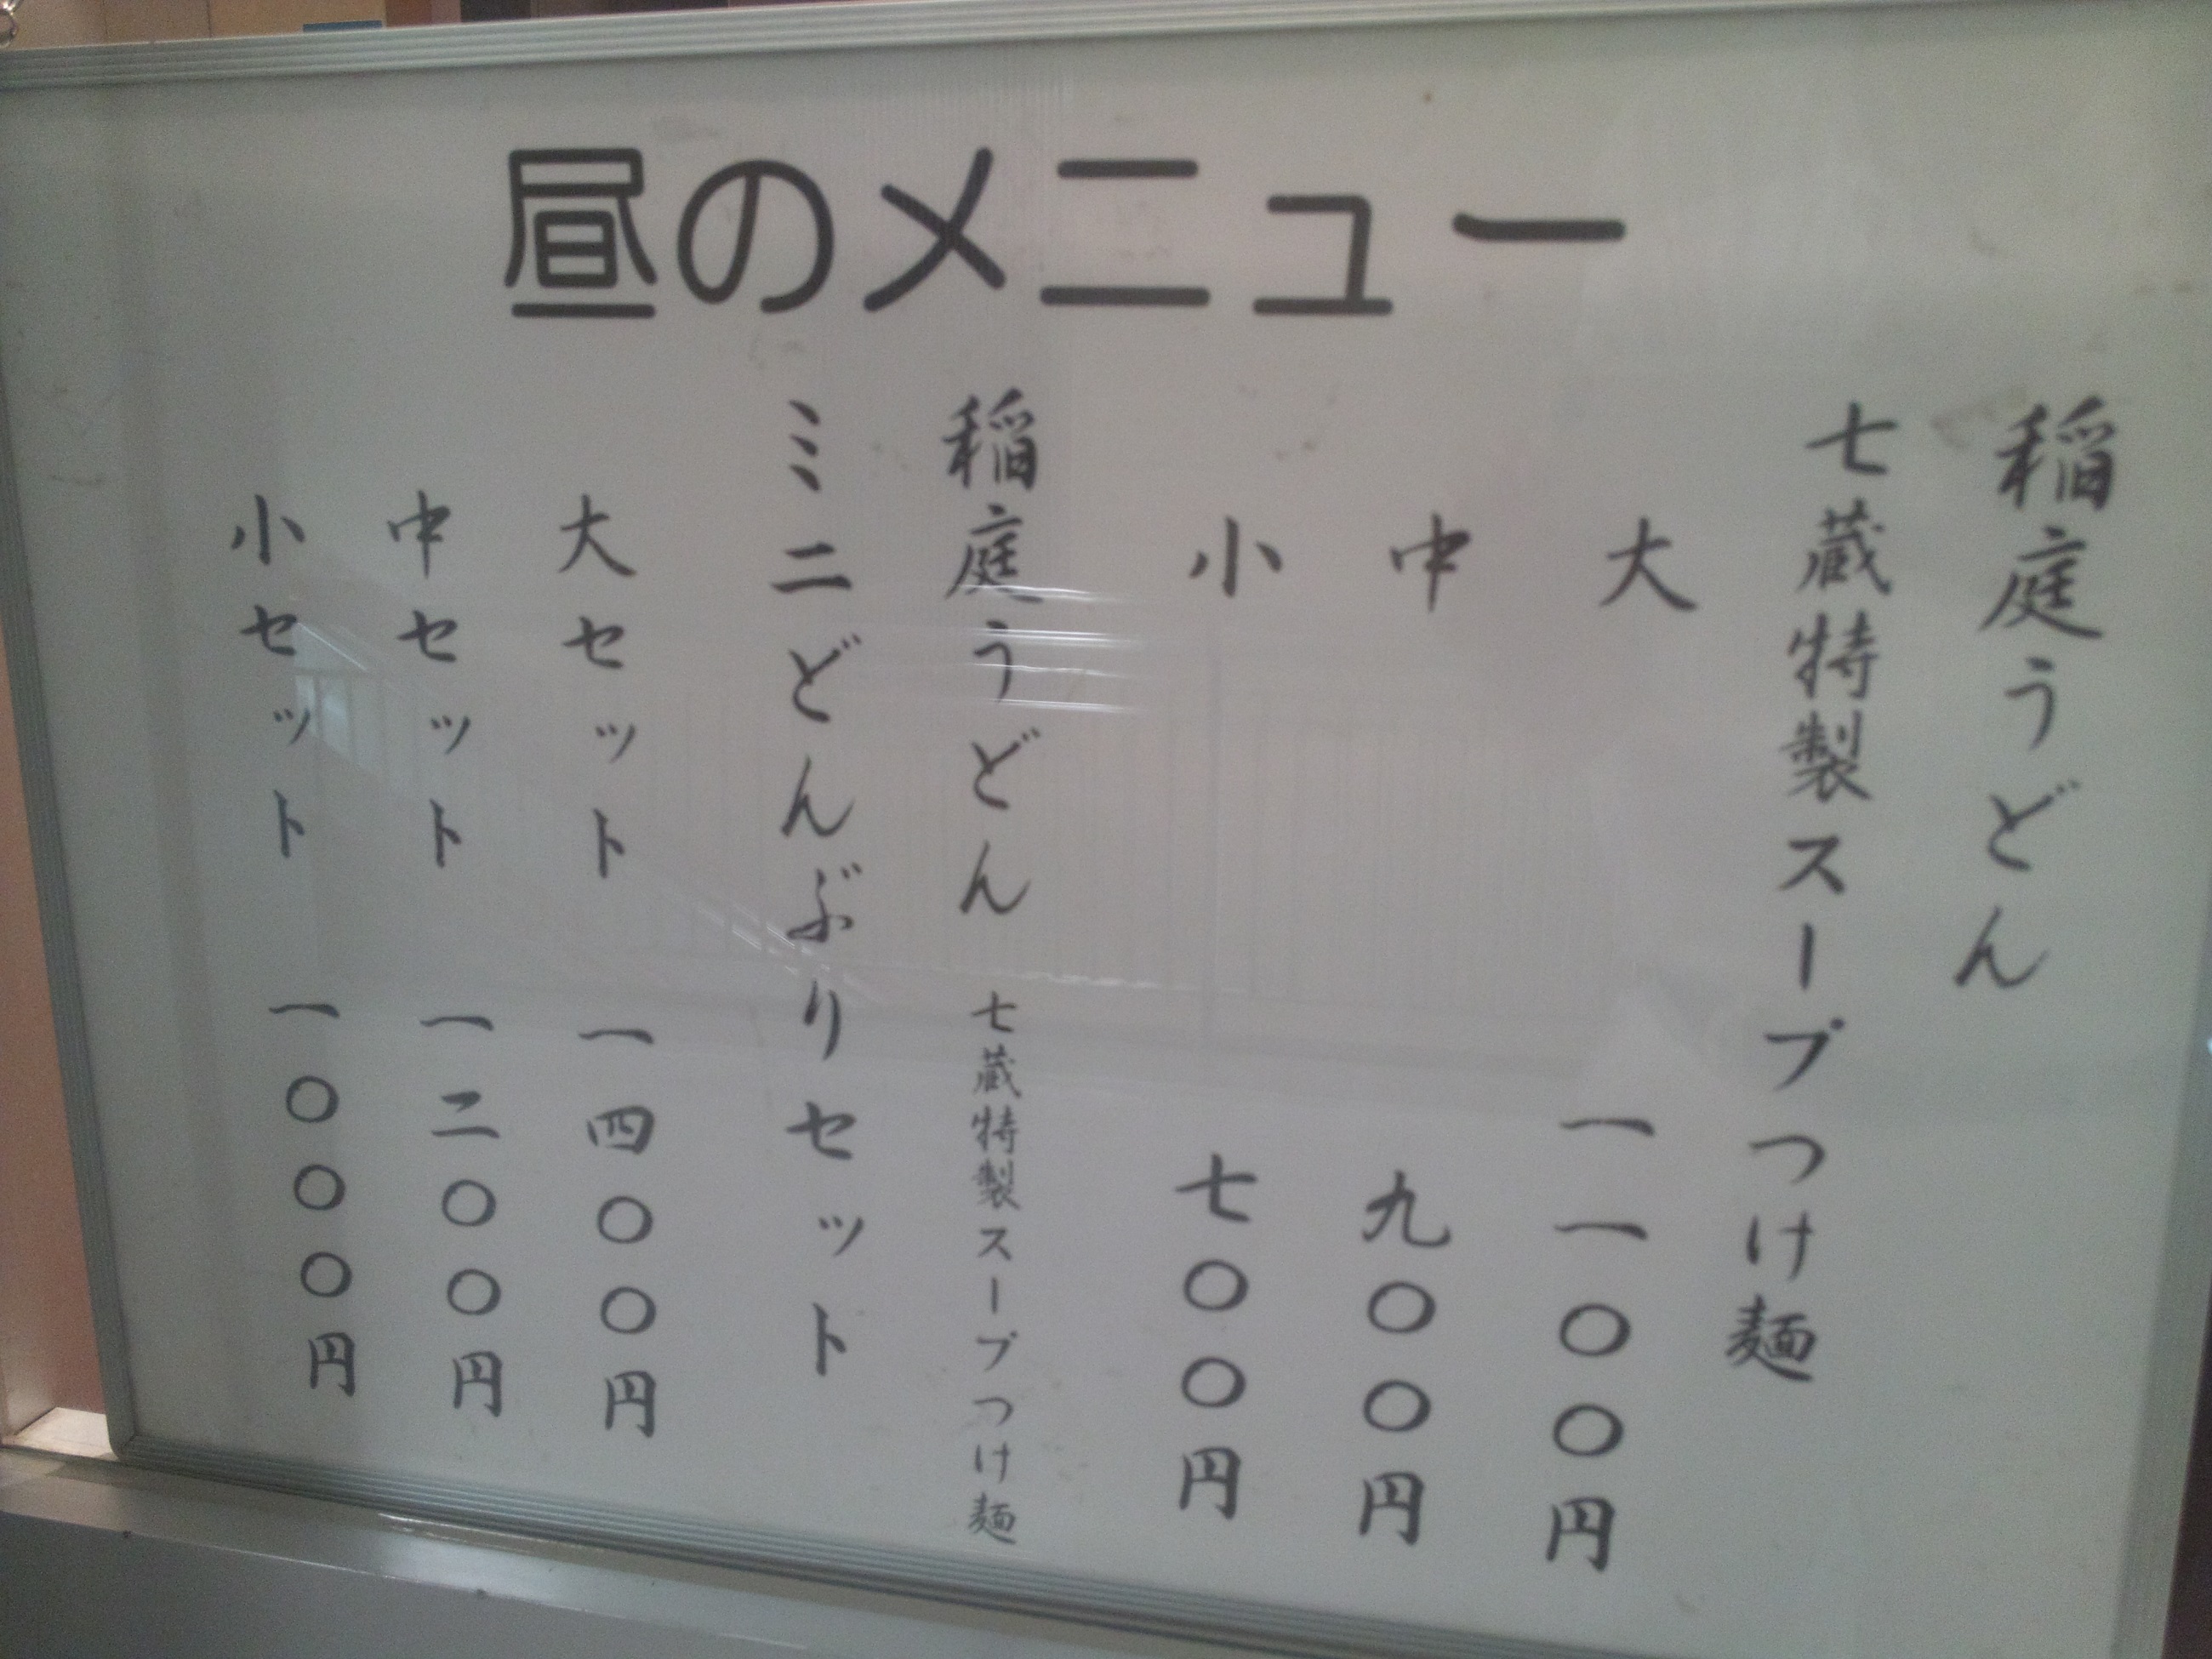 昼のメニュー
稲庭うどん
七蔵特製スープつけ麺
大 一一〇〇円
中 九〇〇円
小 七〇〇円
稲庭うどん 七蔵特製スープつけ麺
ミニどんぶりセット
大セット 一四〇〇円
中セット 一二〇〇円
小セット 一〇〇〇円